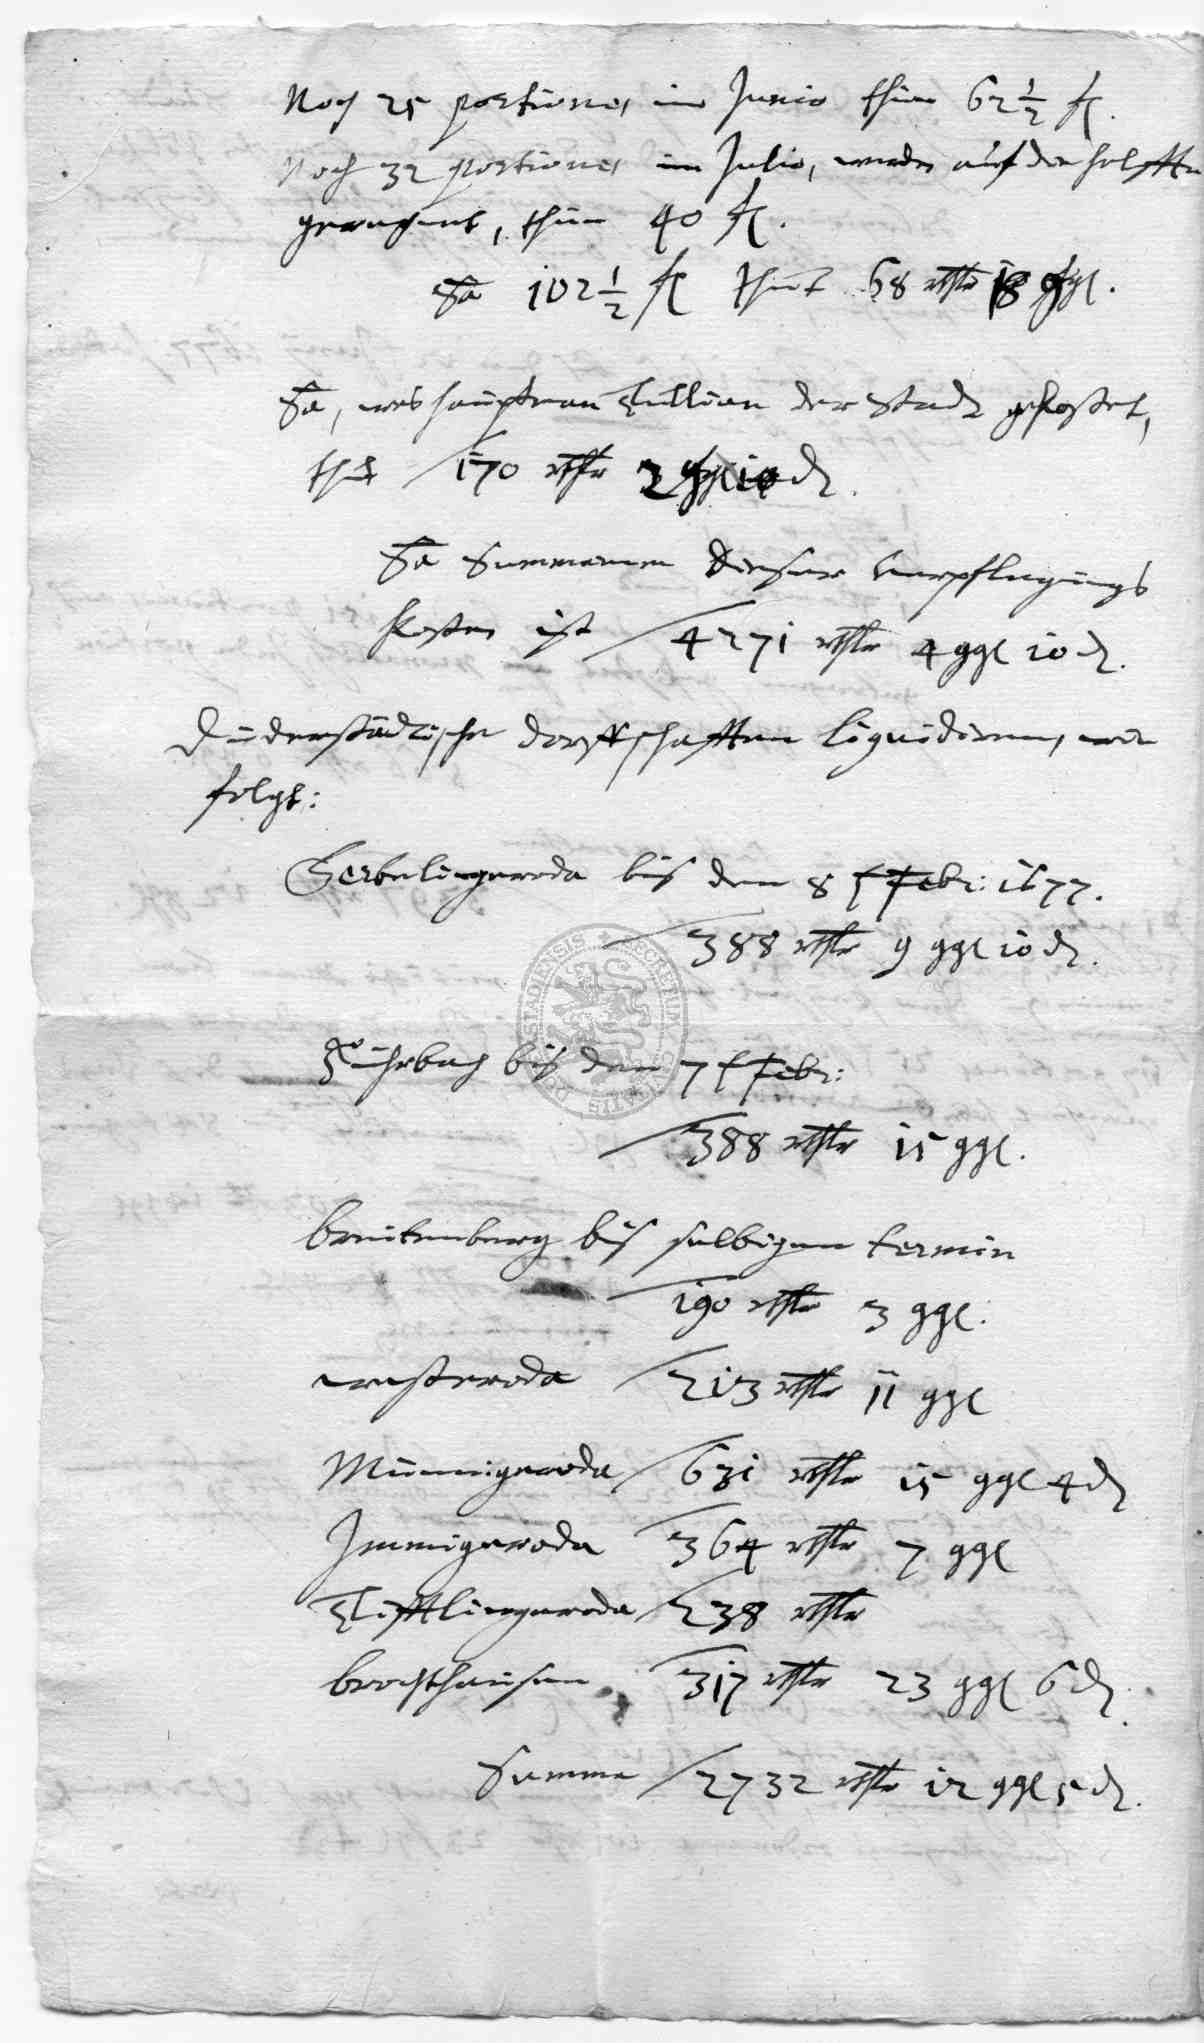 Noch 25 portiones im Junio thun 62 1/2 fl.
Noch 32 portiones im Julio, werden auf die helffte
gerechnet, thun 40 fl.
Sa 102 1/2 fl thut 68 rthlr 8 ggl.
Sa, was hauptman Tullian der Stadt gekostet,
thut 170 rthlr 2 ggl d.
Sa Summarum dieser verpflegungs
kosten ist 4271 rthlr 4 ggl 10 d.
Duderstädtische dorffschafften liquidiren, wie
folgt:
Gerbelingeroda biß den 8 t Febr: 1677.
388 rthlr 9 ggl 10 d.
Fuhrbach biß den 7 t Febr:
388 rthlr 15 ggl.
breitenberg biß selbigen termin
190 rthlr 3 ggl.
westeroda 213 rthlr 11 ggl
Minnigeroda 631 rthlr 15 ggl 4 d
Immigeroda 364 rthlr 7 ggl
Tifftlingeroda 238 rthlr
brochthausen 317 rthlr 23 ggl 6 d.
Summa 2732 rthlr 12 ggl 5 d.